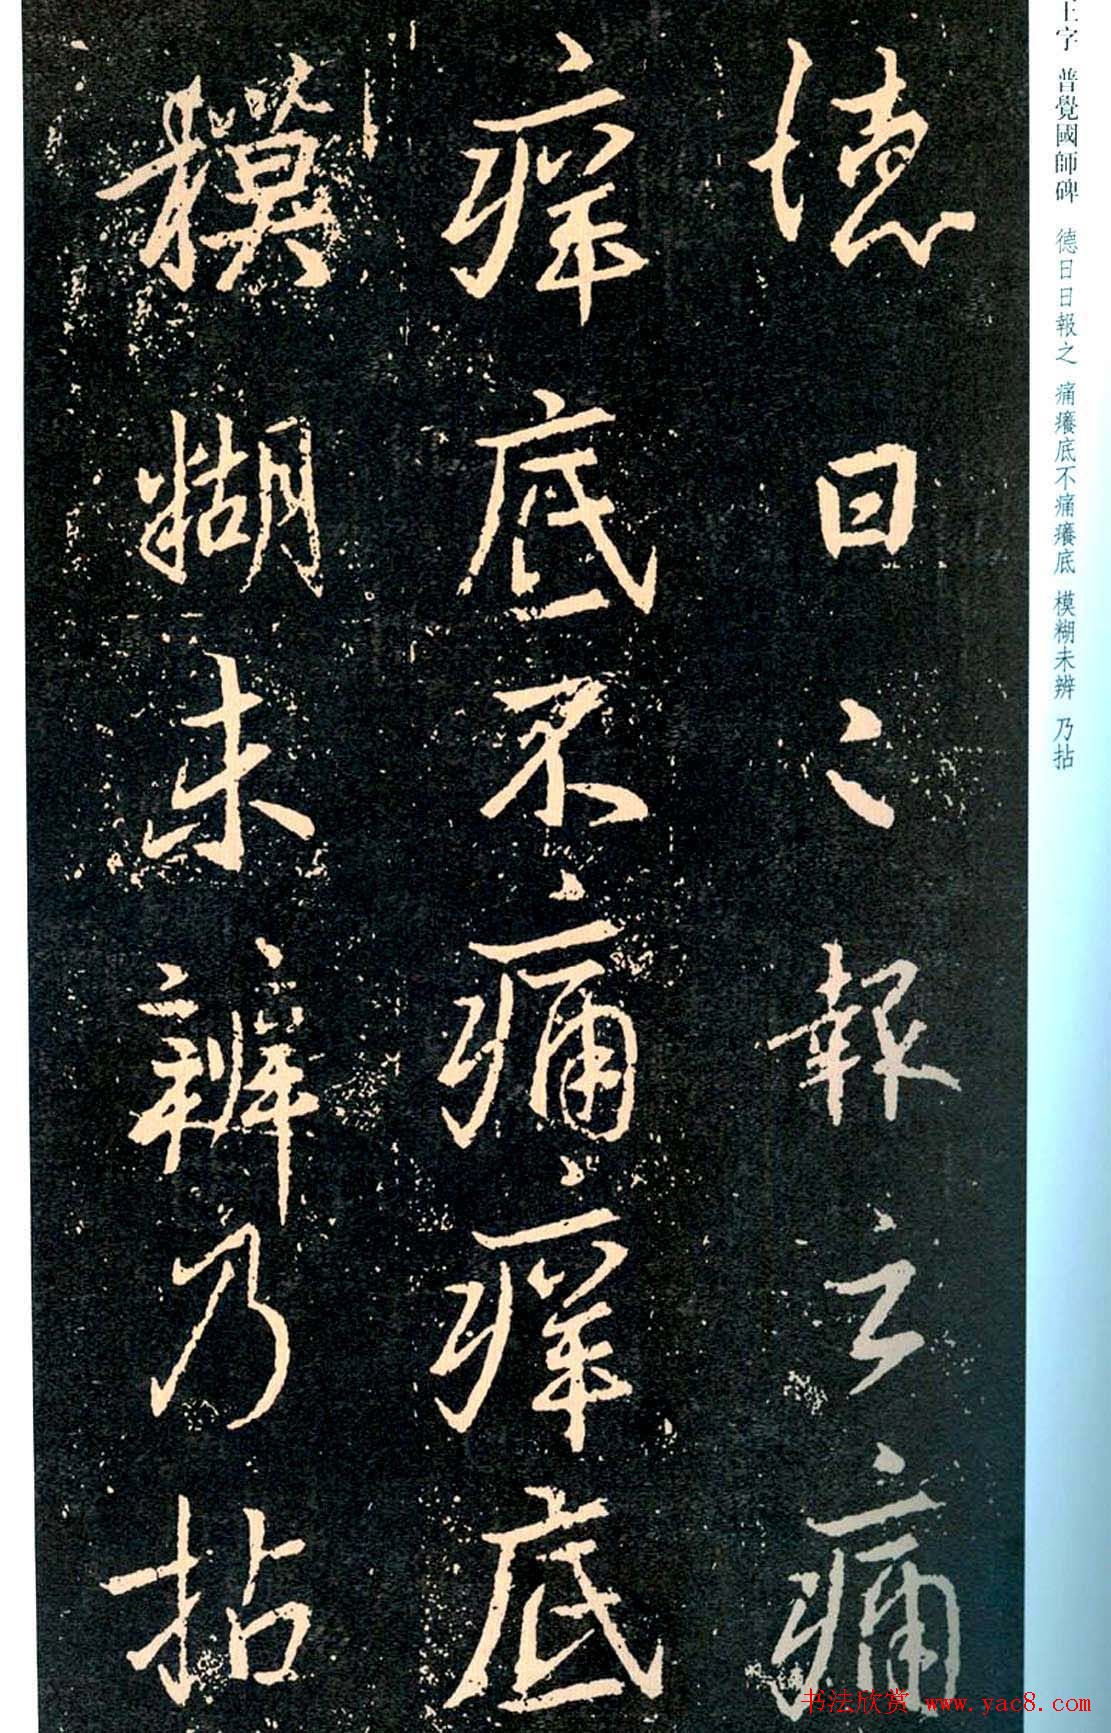 王字 普覺國師碑 德日日報之 痛癢底不痛癢底 模糊未辨 乃拈
德日〻報之痛
痒底不痛痒底
糢糊未辨乃拈
书法欣赏 www.yac8.com